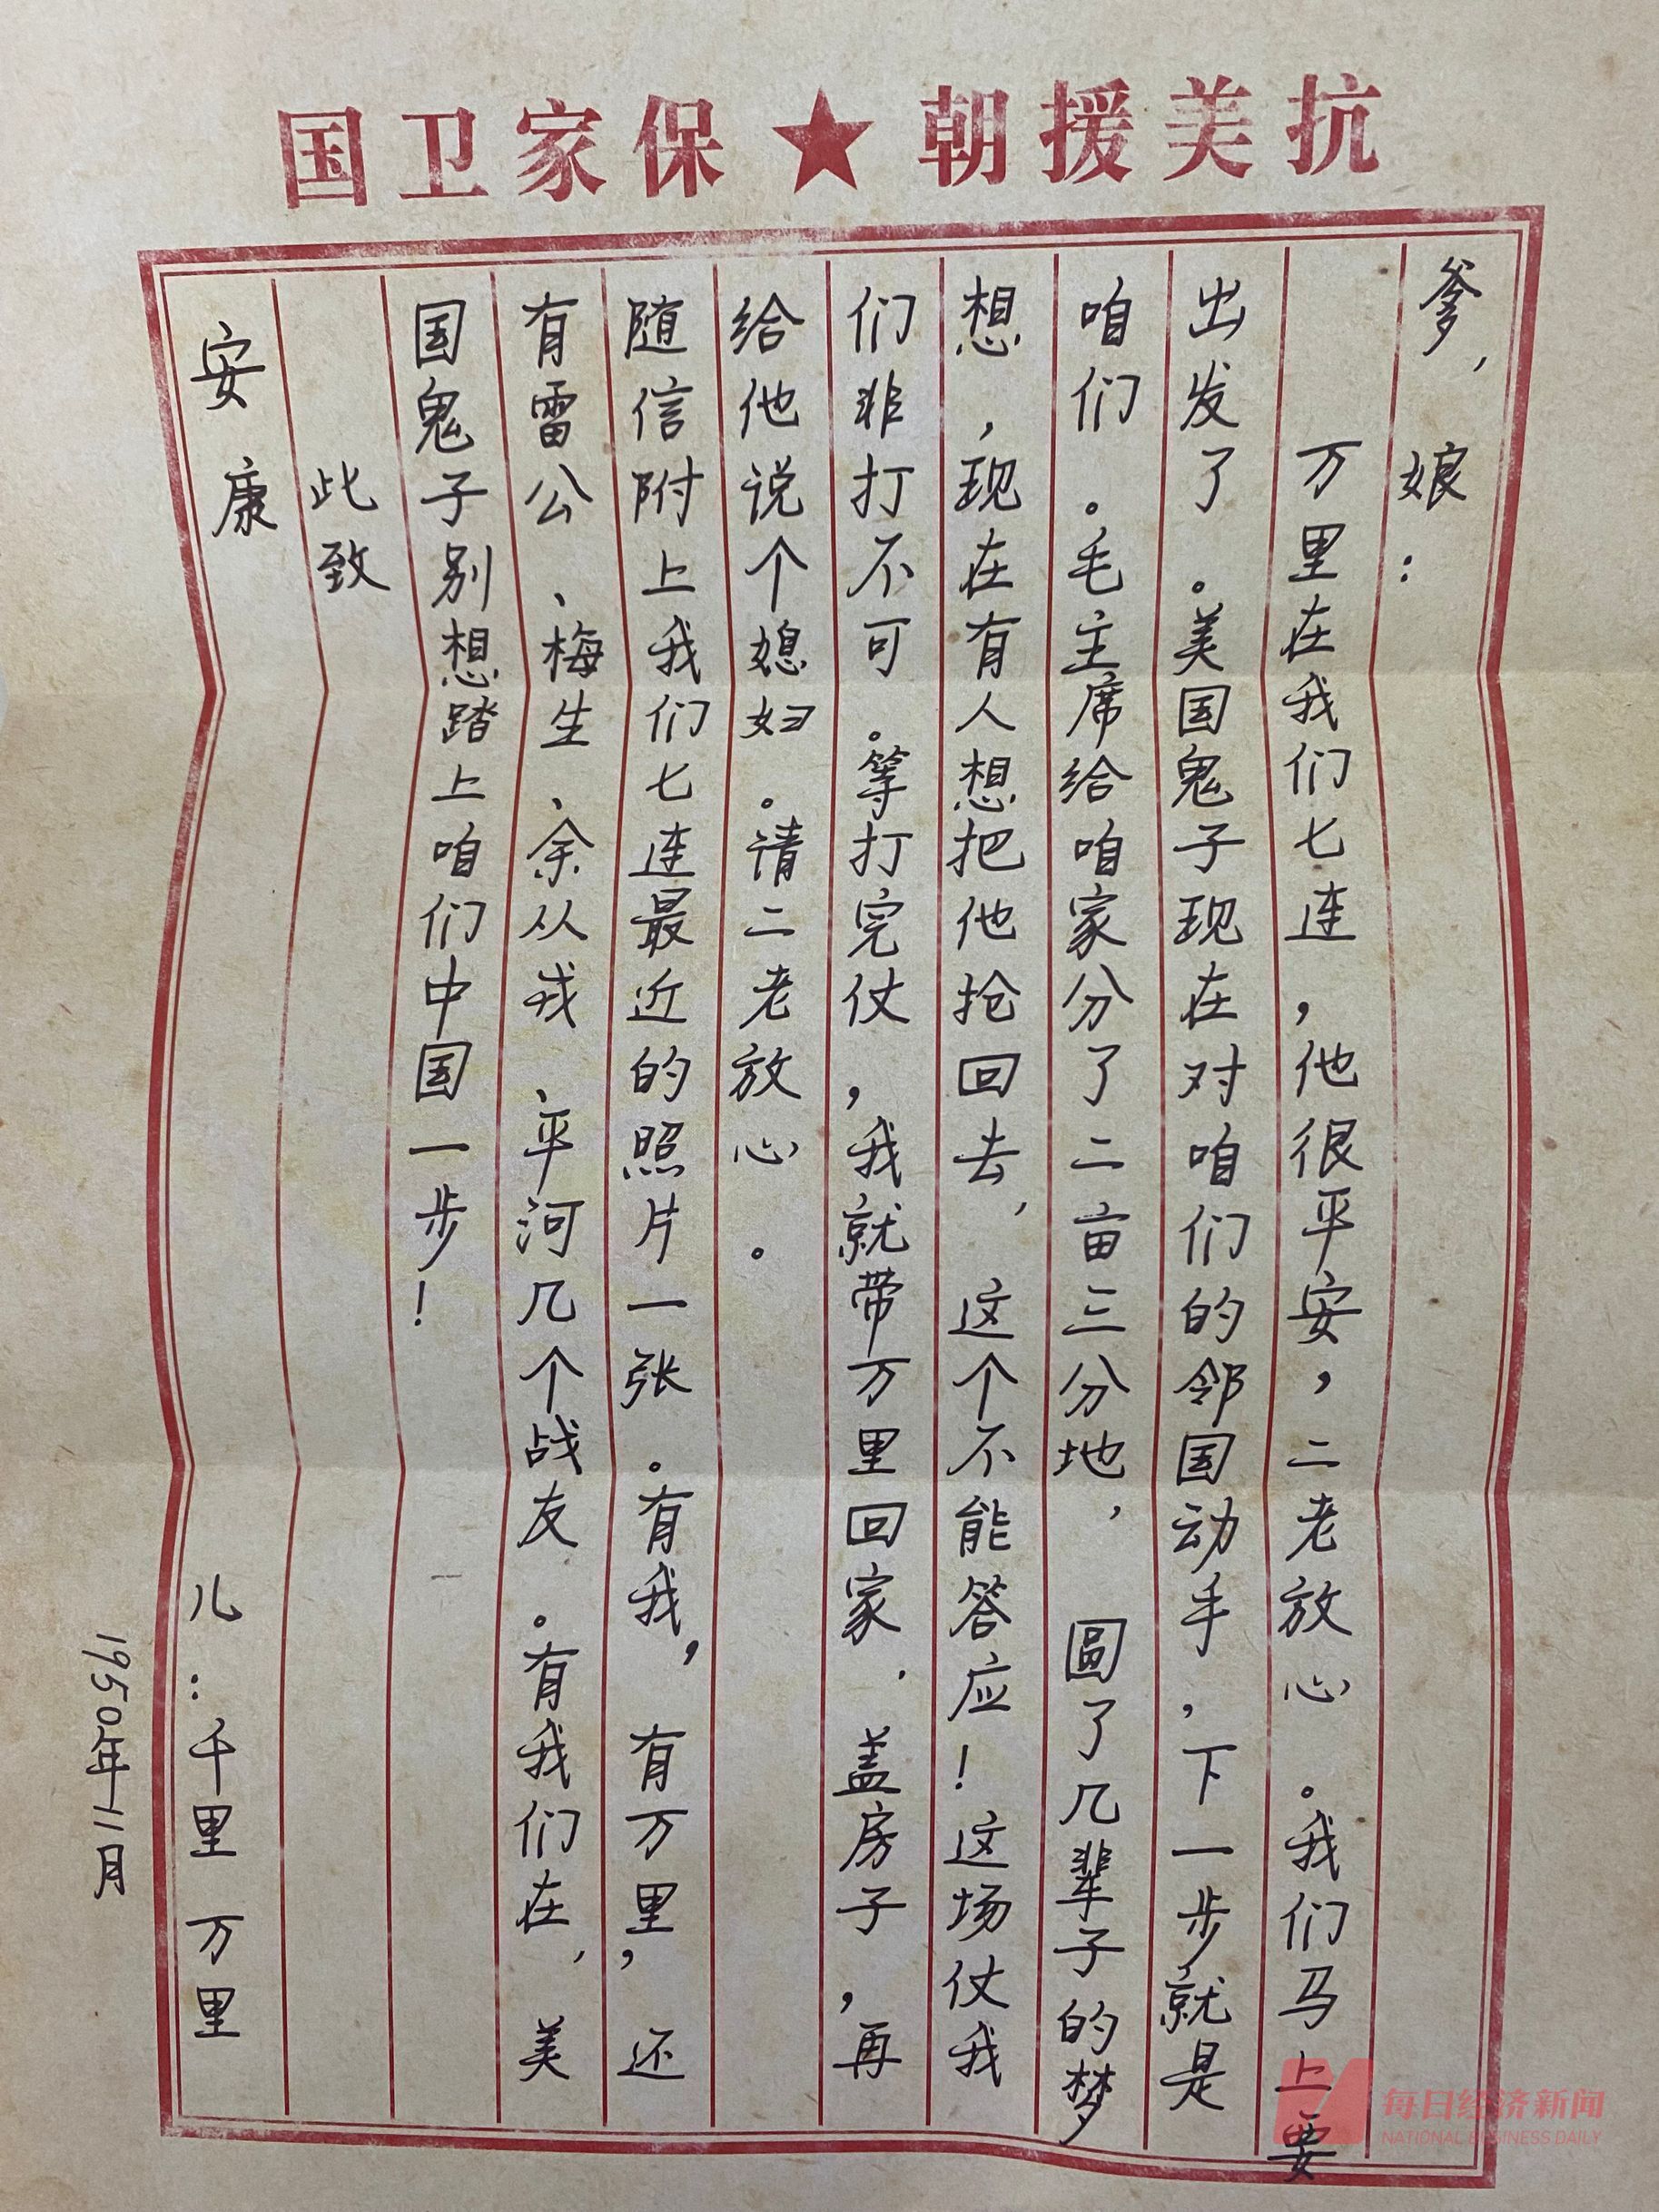 抗美援朝★保家卫国
爹，娘：
万里在我们七连，他很平安，二老放心。我们马上要
出发了。美国鬼子现在对咱们的邻国动手，下一步就是
咱们。毛主席给咱家分了二亩三分地，圆了几辈子的梦
想，现在有人想把他抢回去，这个不能答应！这场仗我
们非打不可。等打完仗，我就带万里回家．盖房子，再
给他说个媳妇。请二老放心。
随信附上我们七连最近的照片一张。有我，有万里，还
有雷公、梅生、余从戎、平河几个战友。有我们在，美
国鬼子别想踏上咱们中国一步！
此致
安康
儿：千里 万里
1950年11月
每日经济新闻
NATIONAL BUSINESS DAILY